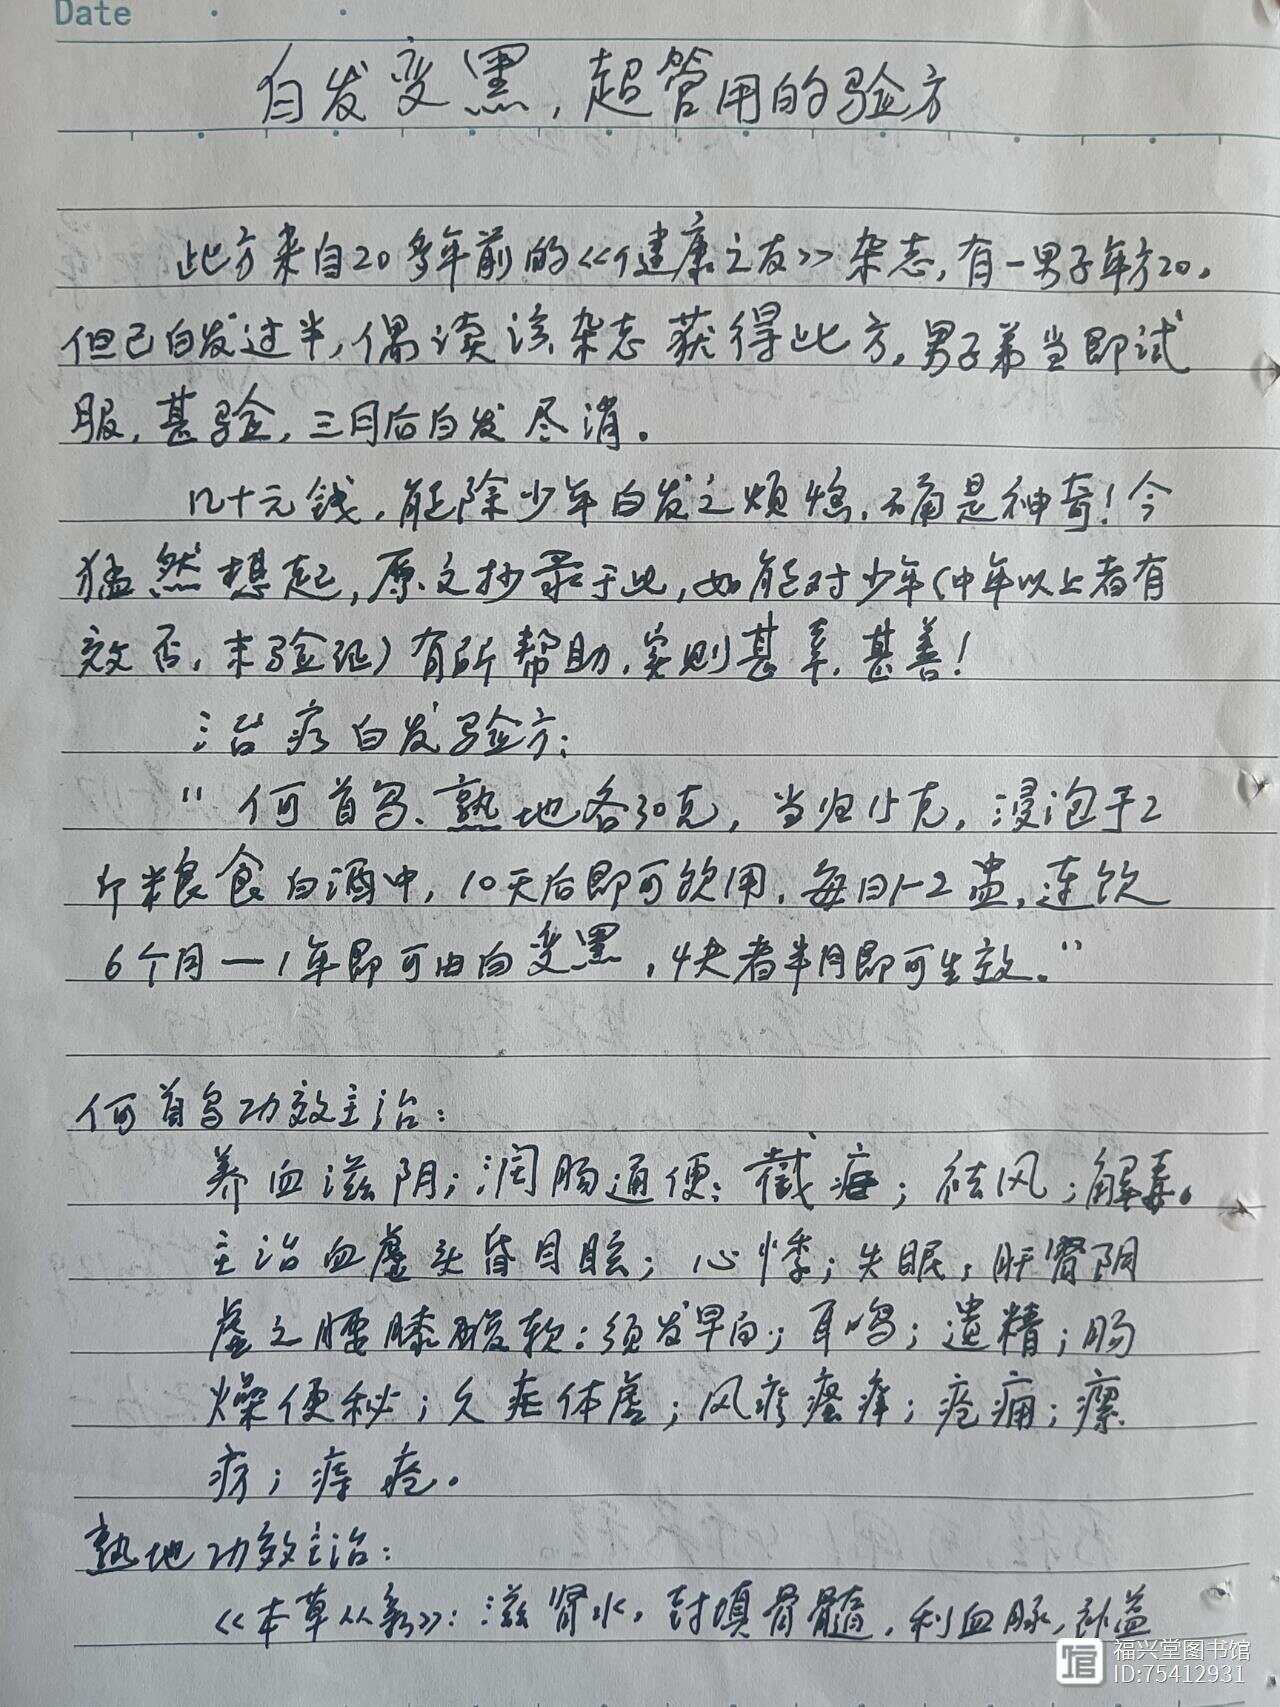 Date
白发变黑，超管用的验方
此方来自20多年前的《健康之友》杂志，有一男子年方20，
但已白发过半，偶读该杂志获得此方，男子弟当即试
服，甚验，三月后白发尽消。
几十元钱，能除少年白发之烦恼，确是神奇！今
猛然想起，原文抄录于此，如能对少年（中年以上者有
效否，未验证）有所帮助，实则甚幸，甚善！
治疗白发验方：
“何首乌、熟地各30克，当归15克，浸泡于2
斤粮食白酒中，10天后即可饮用，每日1-2盅，连饮
6个月一1年即可由白变黑，快者半月即可生效。”
何首乌功效主治：
养血滋阴；润肠通便；截疟；祛风；解毒。
主治血虚头昏目眩；心悸；失眠；肝肾阴
虚之腰膝酸软；须发早白；耳鸣；遗精；肠
燥便秘；久疟体虚；风疹瘙痒；疮痈；瘰
疬；痔疮。
熟地功效主治：
《本草从新》：滋肾水，封填骨髓，利血脉，补益
福兴堂图书馆
ID:75412931